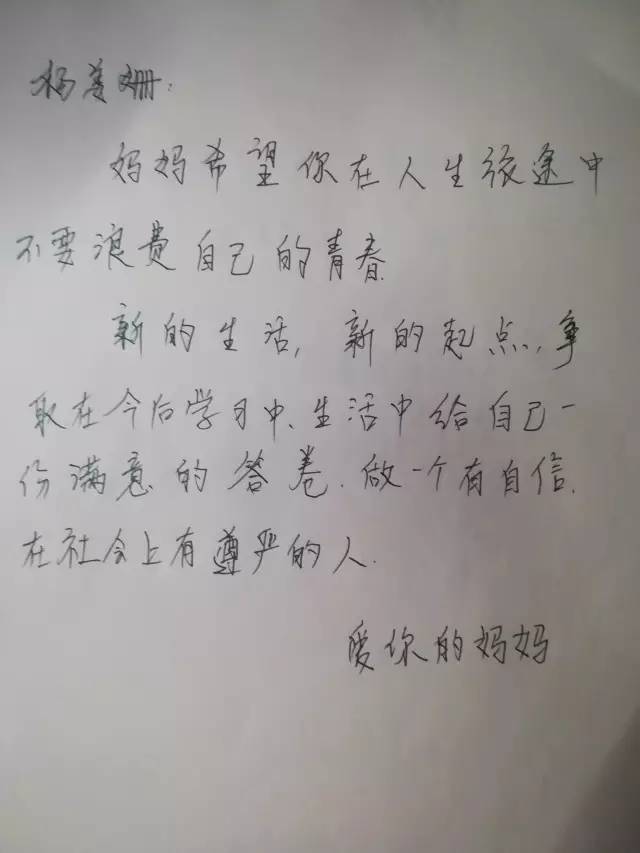 杨美姗:
妈妈希望你在人生旅途中
不要浪费自己的青春.
新的生活,新的起点,争
取在今后学习中、生活中给自己一
份满意的答卷.做一个有自信.
在社会上有尊严的人.
爱你的妈妈